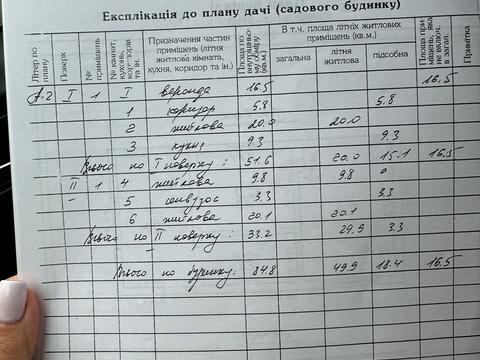 Експлікація до плану дачі (садового будинку)
Літер по плану Поверх № приміщень № кімнат, кухонь, коридорів та ін. Призначення частин приміщень (літня житлова кімната, кухня, коридор та ін.) Площа по внутрішньому обміру (кв.м.) В т.ч. площа літніх житлових приміщень (кв.м.) загальна літня житлова підсобна Площа приміщень, яка не включ. в загал. Примітка
16.5
А-2 I 1 I веранда 16.5
1 коридор 5.8 5.8
2 житлова 20.0 20.0
3 кухня 9.3 9.3
Всього по I поверху: 51.6 20.0 15.1 16.5
II 1 4 житлова 9.8 9.8
- 5 санвузол 3.3 3.3
6 житлова 20.1 20.1
Всього по II поверху: 33.2 29.9 3.3
Всього по будинку: 84.8 49.9 18.4 16.5